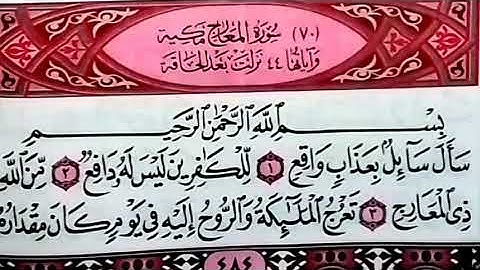 (٧٠) سُورَةُ المَعَارِجِ مَكِّيَّةٌ
وَآيَاتُهَا ٤٤ نَزَلَتْ بَعْدَ الحَاقَّة
بِسْمِ ٱللَّهِ ٱلرَّحْمَٰنِ ٱلرَّحِيمِ
سَأَلَ سَآئِلُۢ بِعَذَابٍ وَاقِعٍ ١ لِّلْكَٰفِرِينَ لَيْسَ لَهُۥ دَافِعٌ ٢ مِّنَ ٱللَّهِ
ذِى ٱلْمَعَارِجِ ٣ تَعْرُجُ ٱلْمَلَٰٓئِكَةُ وَٱلرُّوحُ إِلَيْهِ فِى يَوْمٍ كَانَ مِقْدَارُهُ
٤٨٤